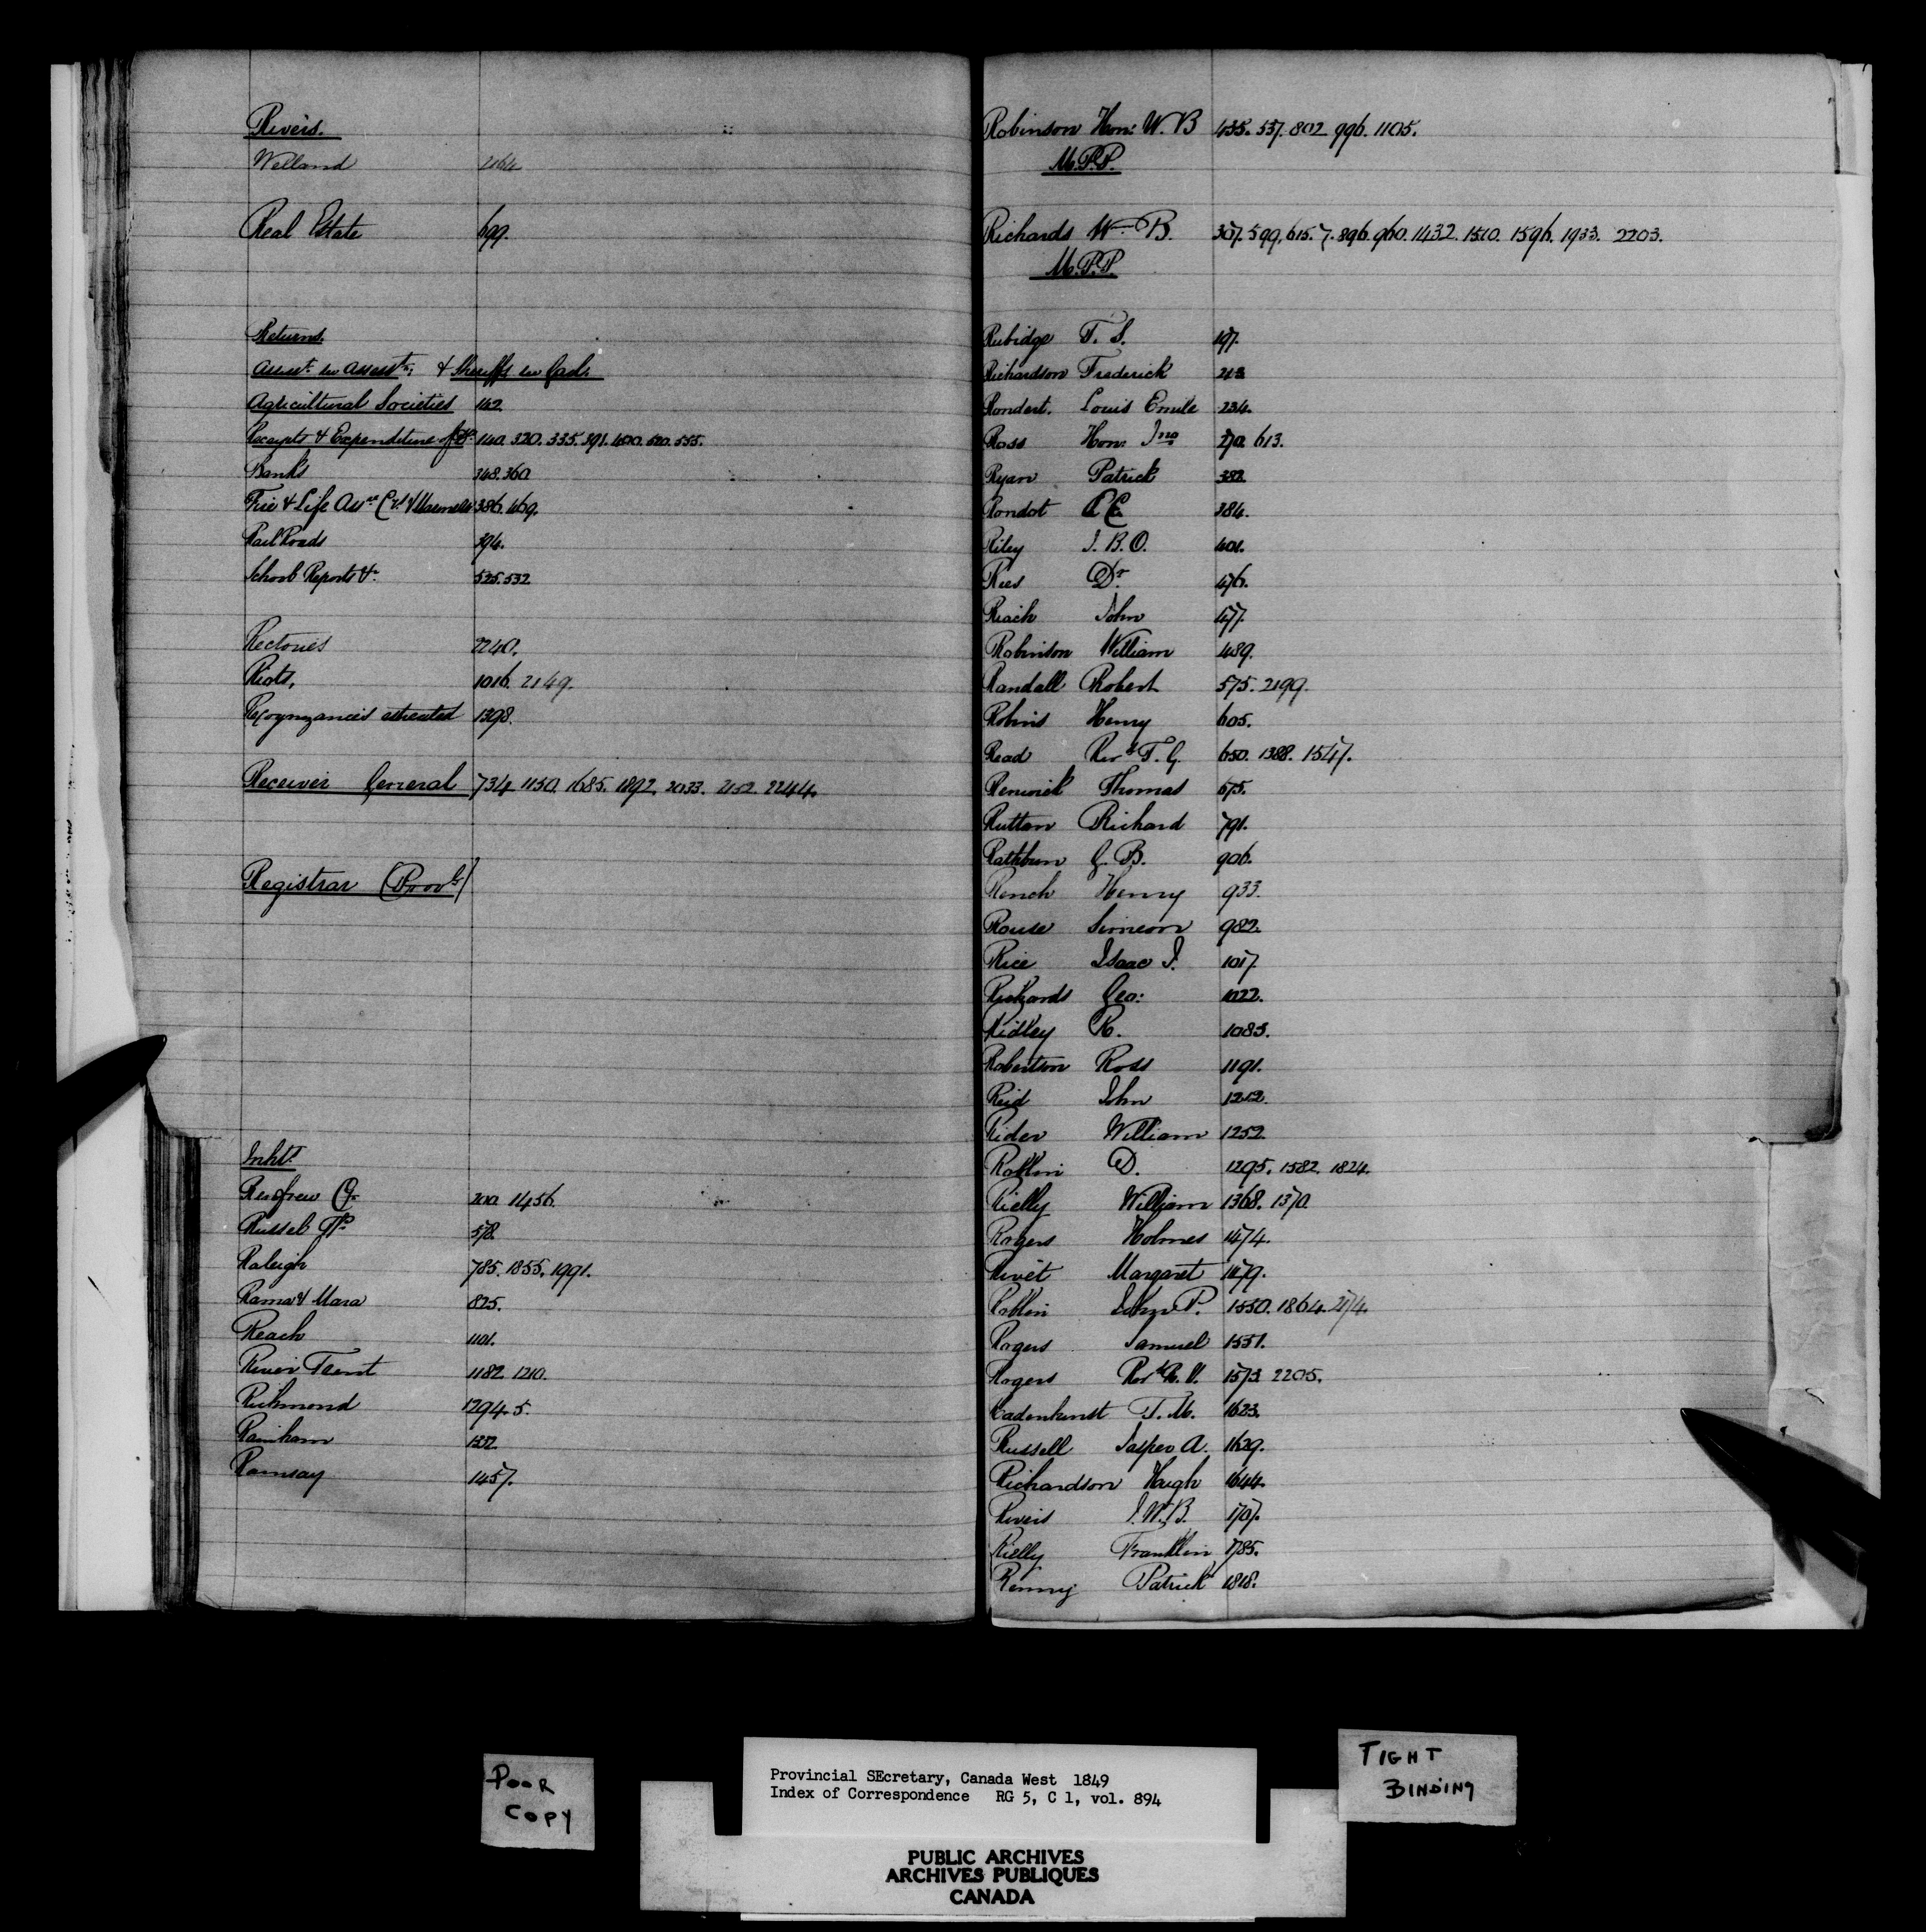 Rivers.
Welland 2164
Real Estate 699.
Returns.
Assest. see Assests. & Sheriffs see Gaols
Agricultural Societies 162
Receipts & Expenditure of Do. 140. 320. 335. 391. 400. 520. 555.
Banks 348. 360
Fire & Life Assce Cos. & 386. 469.
Rail Roads 394.
School Reports &c. 525. 532
Rectories 2240.
Riots, 1016. 2149.
Recognizances estreated 1398.
Receiver General 734. 1150. 1685. 1892. 2033. 2152. 2244.
Registrar (Provl.)
Inhts.
Renfrew Co. 200. 1456.
Russel Tp. 578.
Raleigh 785. 1855. 1991.
Rama & Mara 825.
Reach 1101.
River Trent 1182. 1210.
Richmond 1294. 5.
Rainham 1332
Ramsay 1457.
Robinson Hon: W. B 435. 537. 802 996. 1105.
M.P.P.
Richards W. B. 307. 599. 615. 7. 896. 960. 1432. 1510. 1596. 1933. 2203.
M.P.P.
Rubidge F. S. 197.
Richardson Frederick 213
Rondert. Louis Emile 234.
Ross Hon: Jno 270. 613.
Ryan Patrick 382.
Rondot 384.
Riley J. B. O. 401.
Rees Dr. 476.
Riach John 477.
Robinson William 489.
Randall Robert 575. 2199.
Robins Henry 605.
Read Revd. T. G. 650. 1388. 1547.
Renwick Thomas 675.
Ruttan Richard 791.
Rathbun G. B. 906.
Rench Henry 933.
Rouse Simeon 982.
Rice Isaac J. 1017.
Richards Geo: 1022.
Ridley R. 1085.
Robertson Ross 1191.
Reid John 1212.
Rider William 1252
Roblin D. 1295. 1582. 1824.
Rielly William 1368. 1370
Rogers Holmes 1474.
Rivét Margaret 1479.
Roblin John P. 1550. 1864. 2174.
Rogers Samuel 1551.
Rogers Revd. R. V. 1573. 2205.
Radenhurst T. M. 1623.
Russell Jasper A. 1629.
Richardson Hugh 1644.
Rivers J. W. B. 1707.
Rielly Franklin 1785.
Renny Patrick 1818.
POOR
COPY
Provincial SEcretary, Canada West 1849
Index of Correspondence RG 5, C 1, vol. 894
TIGHT
BINDING
PUBLIC ARCHIVES
ARCHIVES PUBLIQUES
CANADA